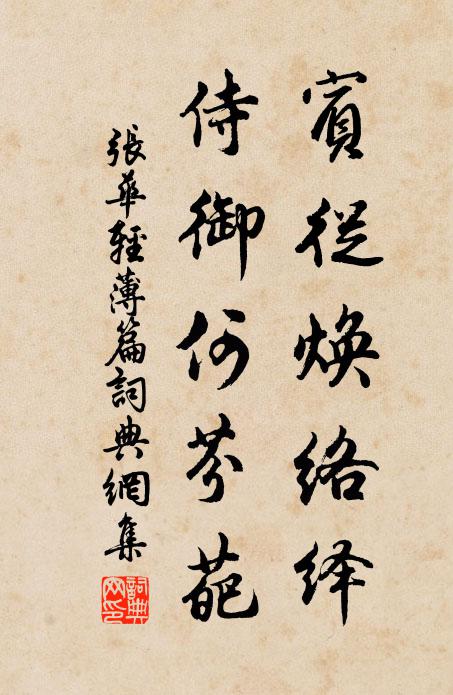 賓從煥络绎
侍御何芬葩
張華輕薄篇詞典網集
詞典網印